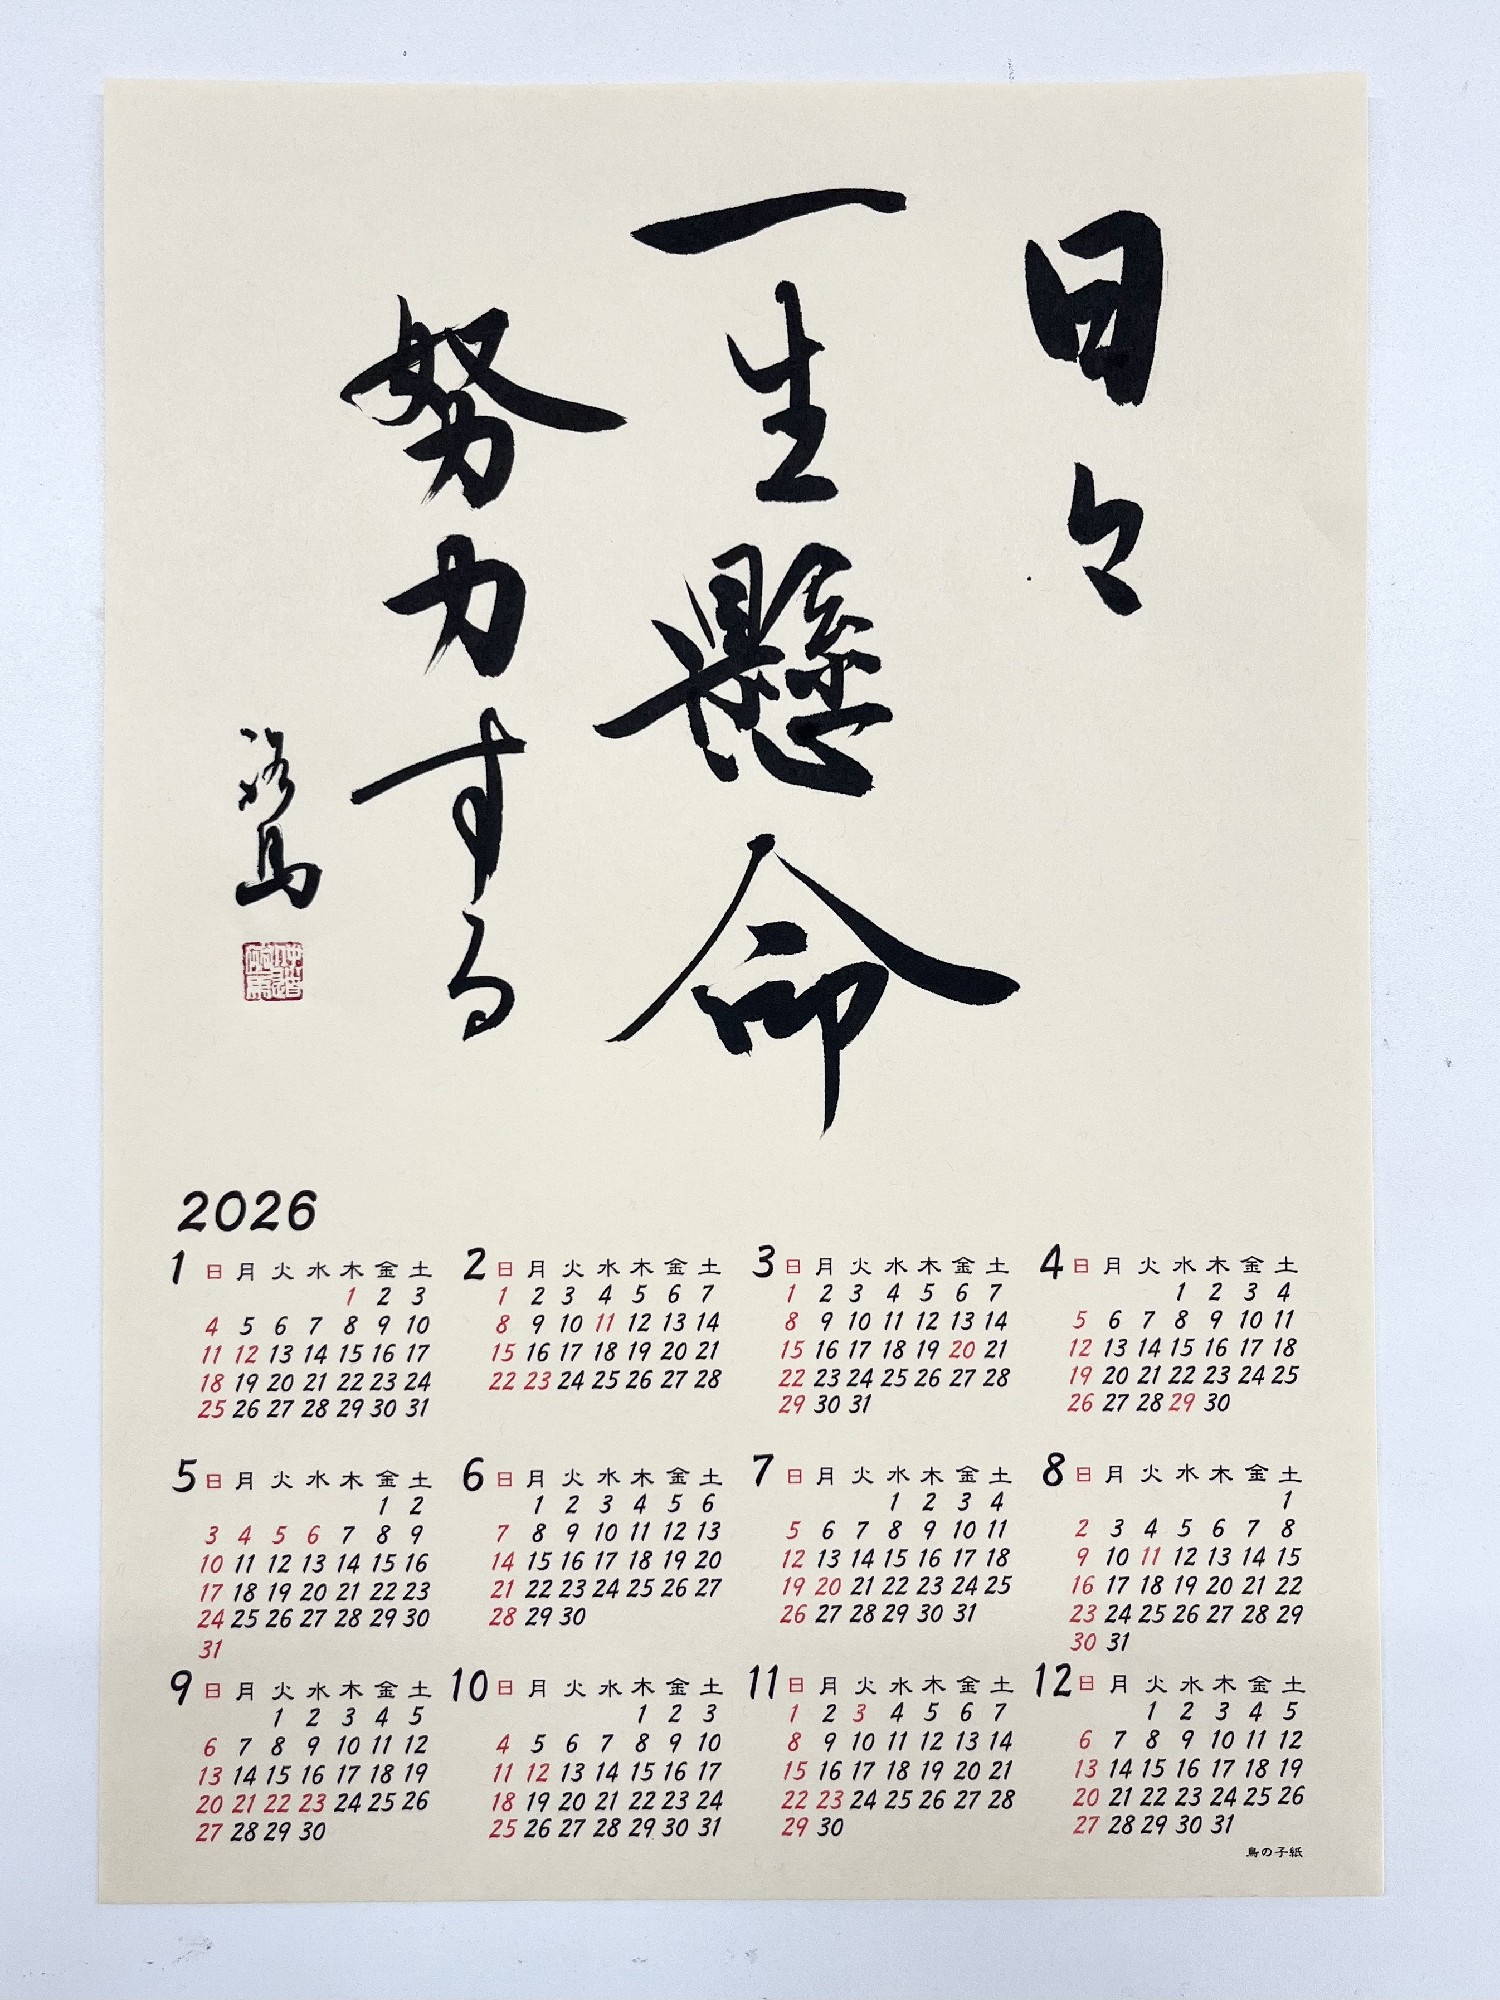 日々
一生懸命
努力する
2026
1 日 月 火 水 木 金 土
1 2 3
4 5 6 7 8 9 10
11 12 13 14 15 16 17
18 19 20 21 22 23 24
25 26 27 28 29 30 31
2 日 月 火 水 木 金 土
1 2 3 4 5 6 7
8 9 10 11 12 13 14
15 16 17 18 19 20 21
22 23 24 25 26 27 28
3 日 月 火 水 木 金 土
1 2 3 4 5 6 7
8 9 10 11 12 13 14
15 16 17 18 19 20 21
22 23 24 25 26 27 28
29 30 31
4 日 月 火 水 木 金 土
1 2 3 4
5 6 7 8 9 10 11
12 13 14 15 16 17 18
19 20 21 22 23 24 25
26 27 28 29 30
5 日 月 火 水 木 金 土
1 2
3 4 5 6 7 8 9
10 11 12 13 14 15 16
17 18 19 20 21 22 23
24 25 26 27 28 29 30
31
6 日 月 火 水 木 金 土
1 2 3 4 5 6
7 8 9 10 11 12 13
14 15 16 17 18 19 20
21 22 23 24 25 26 27
28 29 30
7 日 月 火 水 木 金 土
1 2 3 4
5 6 7 8 9 10 11
12 13 14 15 16 17 18
19 20 21 22 23 24 25
26 27 28 29 30 31
8 日 月 火 水 木 金 土
1
2 3 4 5 6 7 8
9 10 11 12 13 14 15
16 17 18 19 20 21 22
23 24 25 26 27 28 29
30 31
9 日 月 火 水 木 金 土
1 2 3 4 5
6 7 8 9 10 11 12
13 14 15 16 17 18 19
20 21 22 23 24 25 26
27 28 29 30
10 日 月 火 水 木 金 土
1 2 3
4 5 6 7 8 9 10
11 12 13 14 15 16 17
18 19 20 21 22 23 24
25 26 27 28 29 30 31
11 日 月 火 水 木 金 土
1 2 3 4 5 6 7
8 9 10 11 12 13 14
15 16 17 18 19 20 21
22 23 24 25 26 27 28
29 30
12 日 月 火 水 木 金 土
1 2 3 4 5
6 7 8 9 10 11 12
13 14 15 16 17 18 19
20 21 22 23 24 25 26
27 28 29 30 31
鳥の子紙